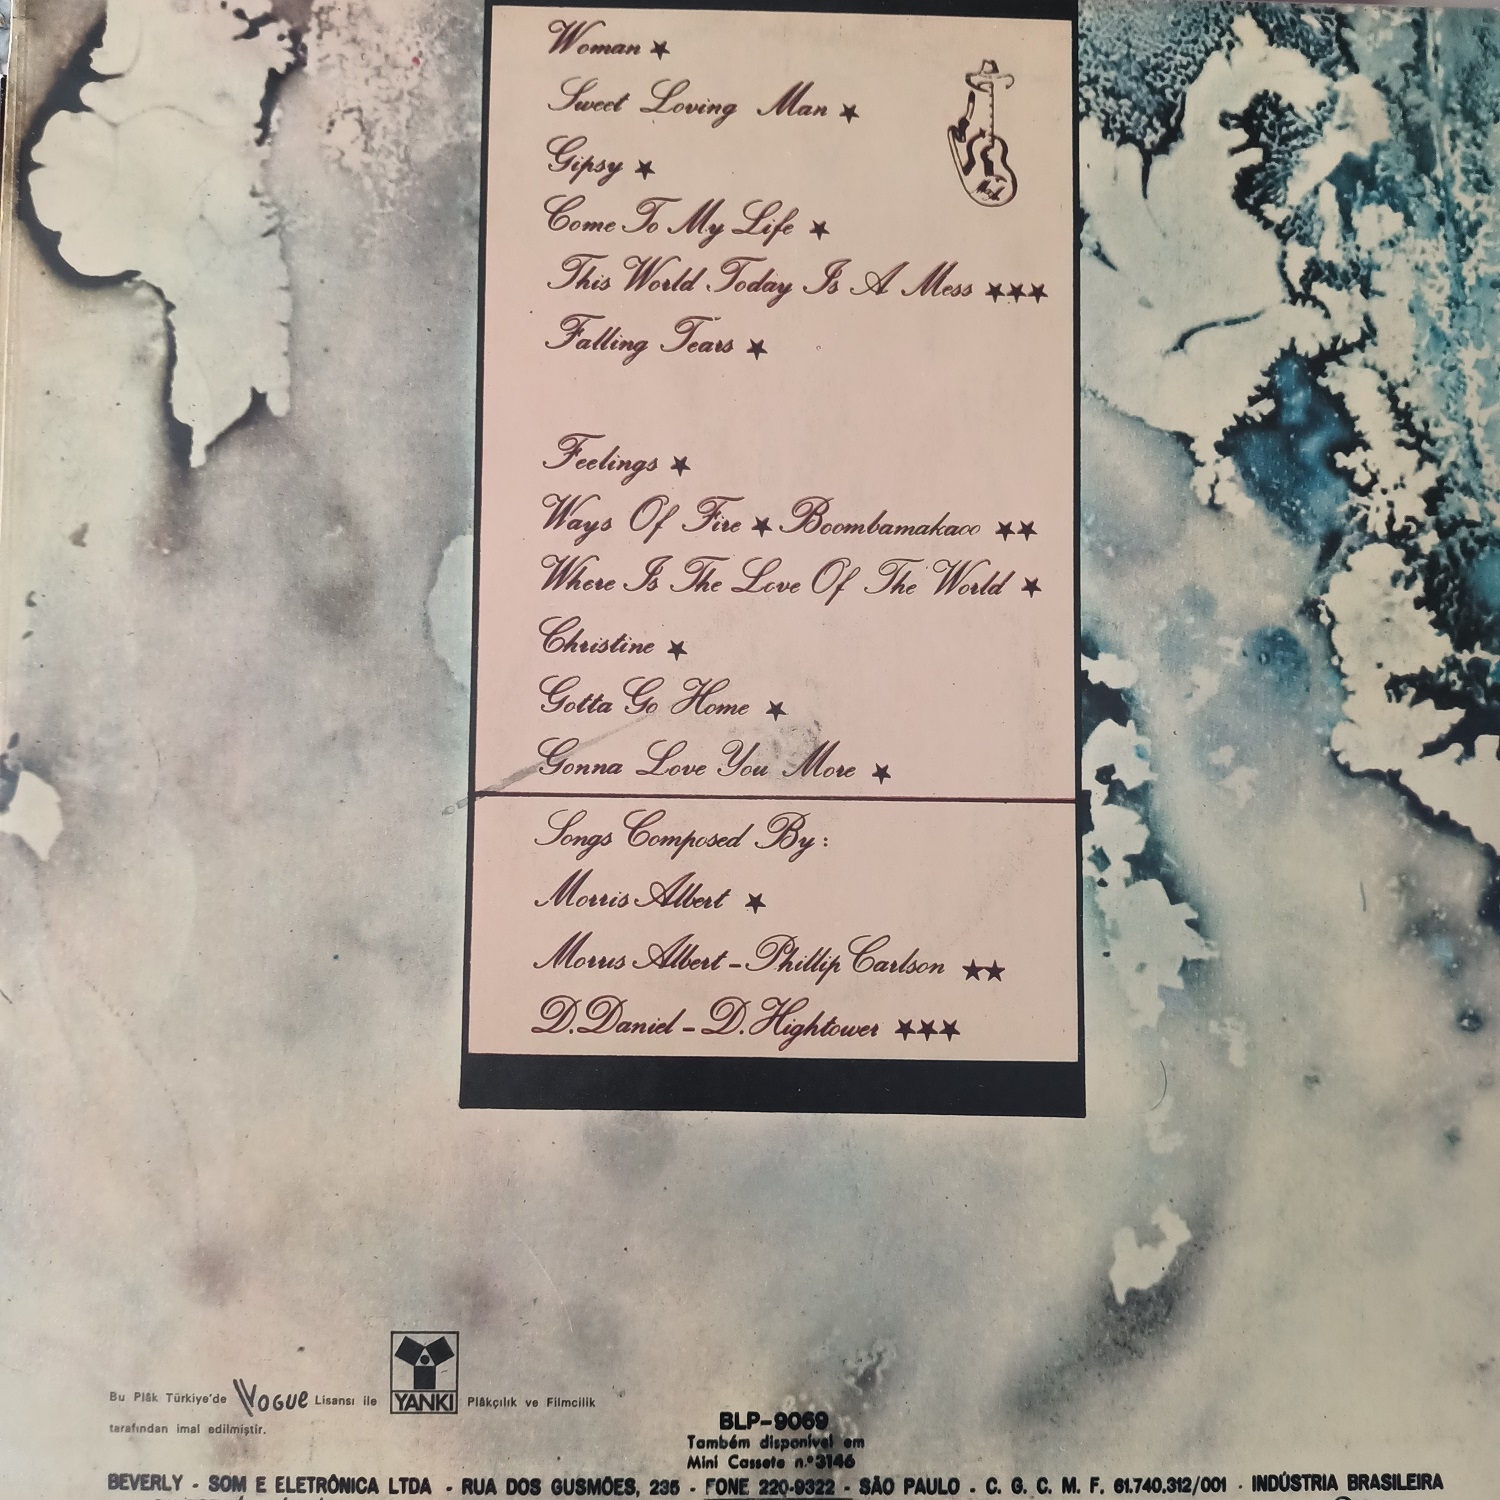 Woman ★
Sweet Loving Man ★
Gipsy ★
Come To My Life ★
This World Today Is A Mess ★★★
Falling Tears ★
Feelings ★
Ways Of Fire ★ Boombamakaoo ★★
Where Is The Love Of The World ★
Christine ★
Gotta Go Home ★
Gonna Love You More ★
Songs Composed By:
Morris Albert ★
Morris Albert - Phillip Carlson ★★
D. Daniel - D. Hightower ★★★
Bu Plâk Türkiye'de VOGUE Lisansı ile YANKI Plâkçılık ve Filmcilik
tarafından imal edilmiştir.
BLP-9069
Também disponível em
Mini Cassete n.º 3146
BEVERLY - SOM E ELETRÔNICA LTDA - RUA DOS GUSMÕES, 235 - FONE 220-9322 - SÃO PAULO - C. G. C. M. F. 61.740.312/001 - INDÚSTRIA BRASILEIRA